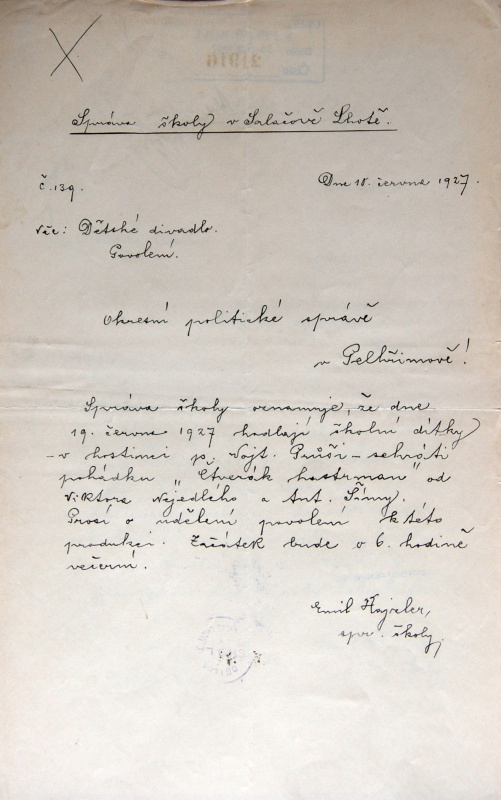 Správa školy v Salačově Lhotě.
č. 139.
Dne 18. června 1927.
Věc: Dětské divadlo.
Povolení.
Okresní politické správě
v Pelhřimově!
Správa školy oznamuje, že dne
19. června 1927 hodlají školní dítky
– v hostinci p. Vojt. Průši – sehráti
pohádku „Čtverák hastrman" od
Viktora Nejedlého a Ant. Šímy.
Prosí o udělení povolení k této
produkci. Začátek bude o 6. hodině
večerní.
Emil Hajzler,
spr. školy.